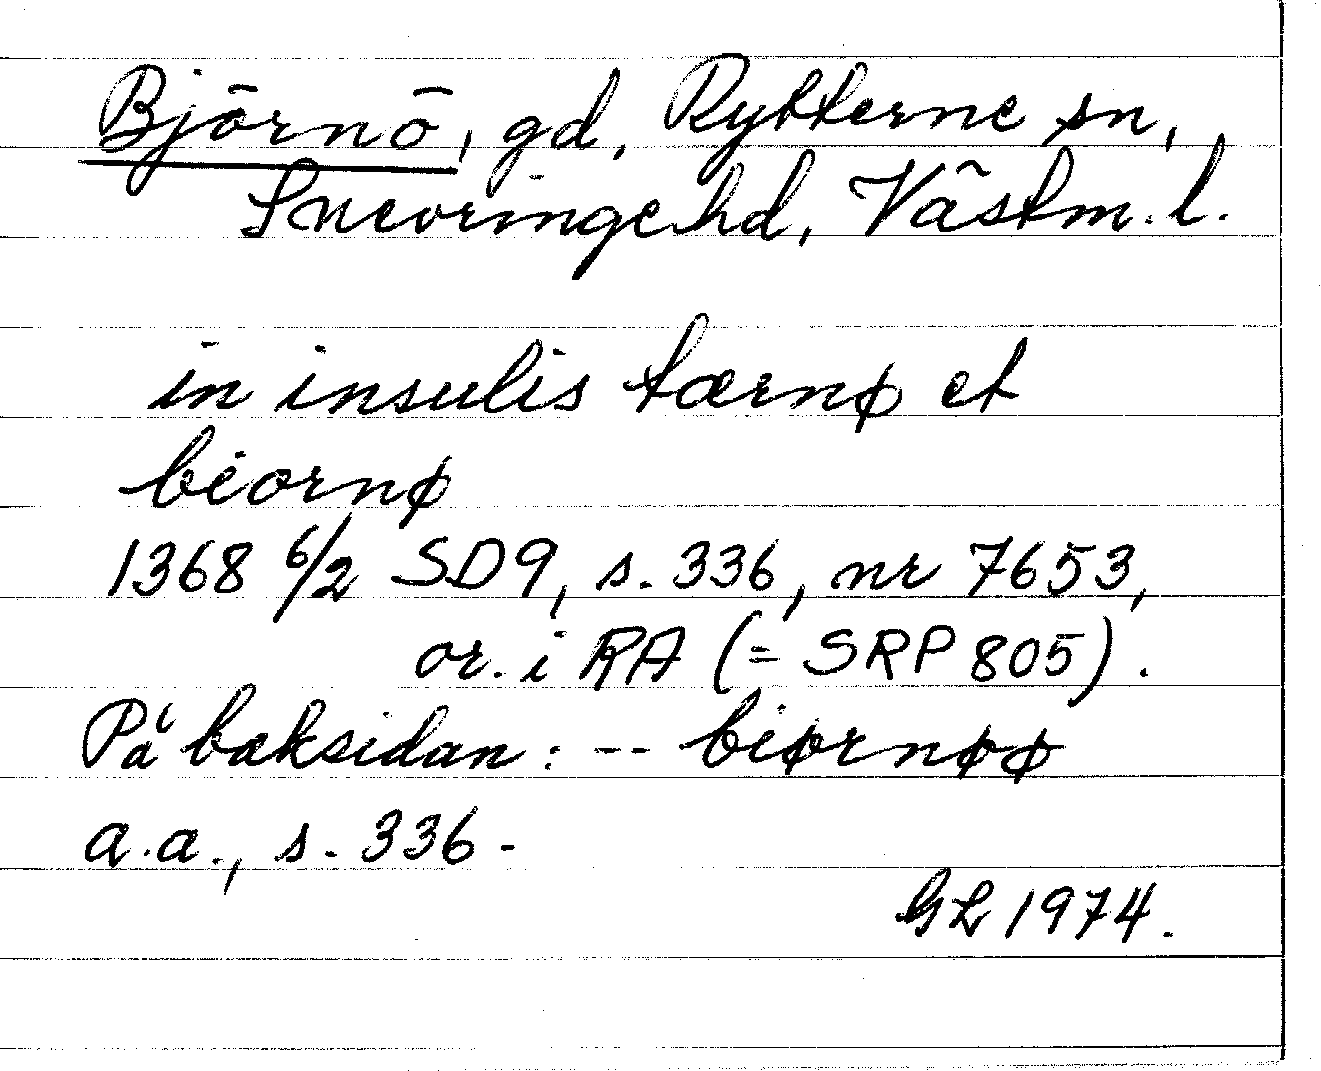 Björnö, gd, Rytterne sn,
Snevringe hd, Västm. l.
in insulis tærnø et
biornø
1368 6/2 SD9, s. 336, nr 7653,
or. i RA (= SRP 805).
På baksidan: -- biørnøø
a.a., s. 336.
GL 1974.